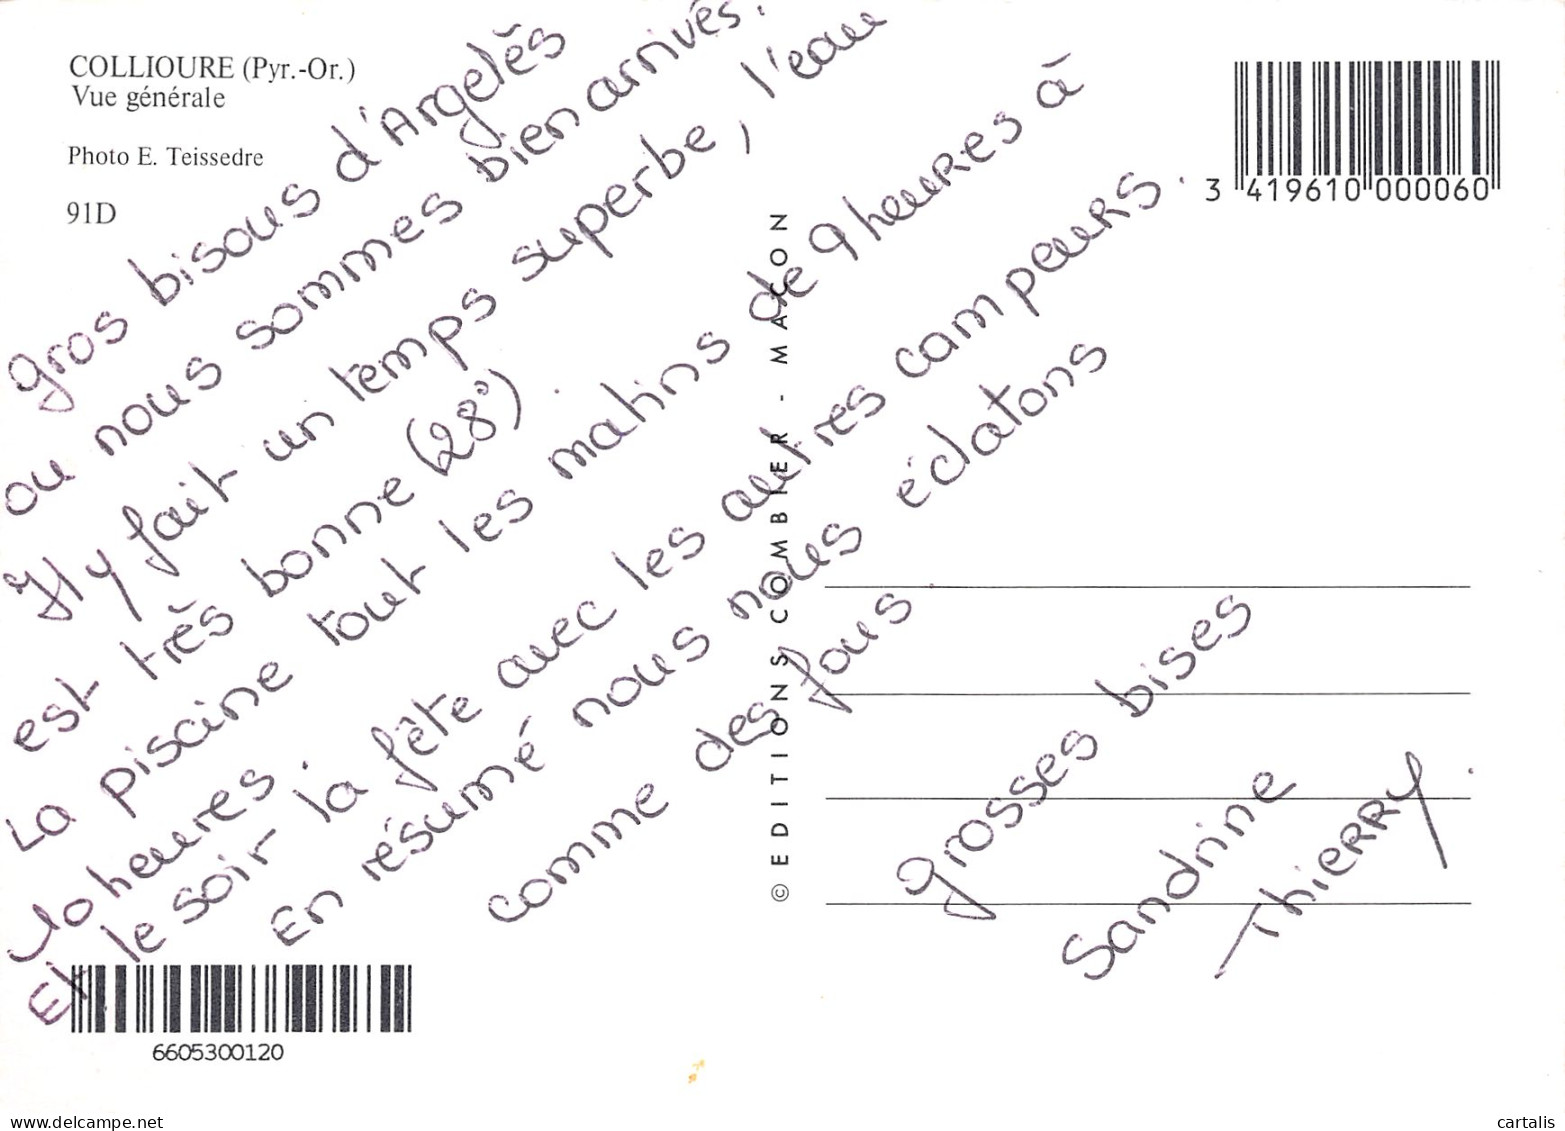 COLLIOURE (Pyr.-Or.)
Vue générale
Photo E. Teissedre
91D
3 419610 000060
gros bisous d'Argelès
ou nous sommes bien arrivés.
Il y fait un temps superbe, l'eau
est très bonne (28°).
La piscine tout les matins de 9 heures à
10 heures.
Et le soir la fête avec les autres campeurs.
En résumé nous nous éclatons
comme des fous.
grosses bises
Sandrine
Thierry
© EDITIONS COMBIER - MACON
6605300120
delcampe.net
cartalis